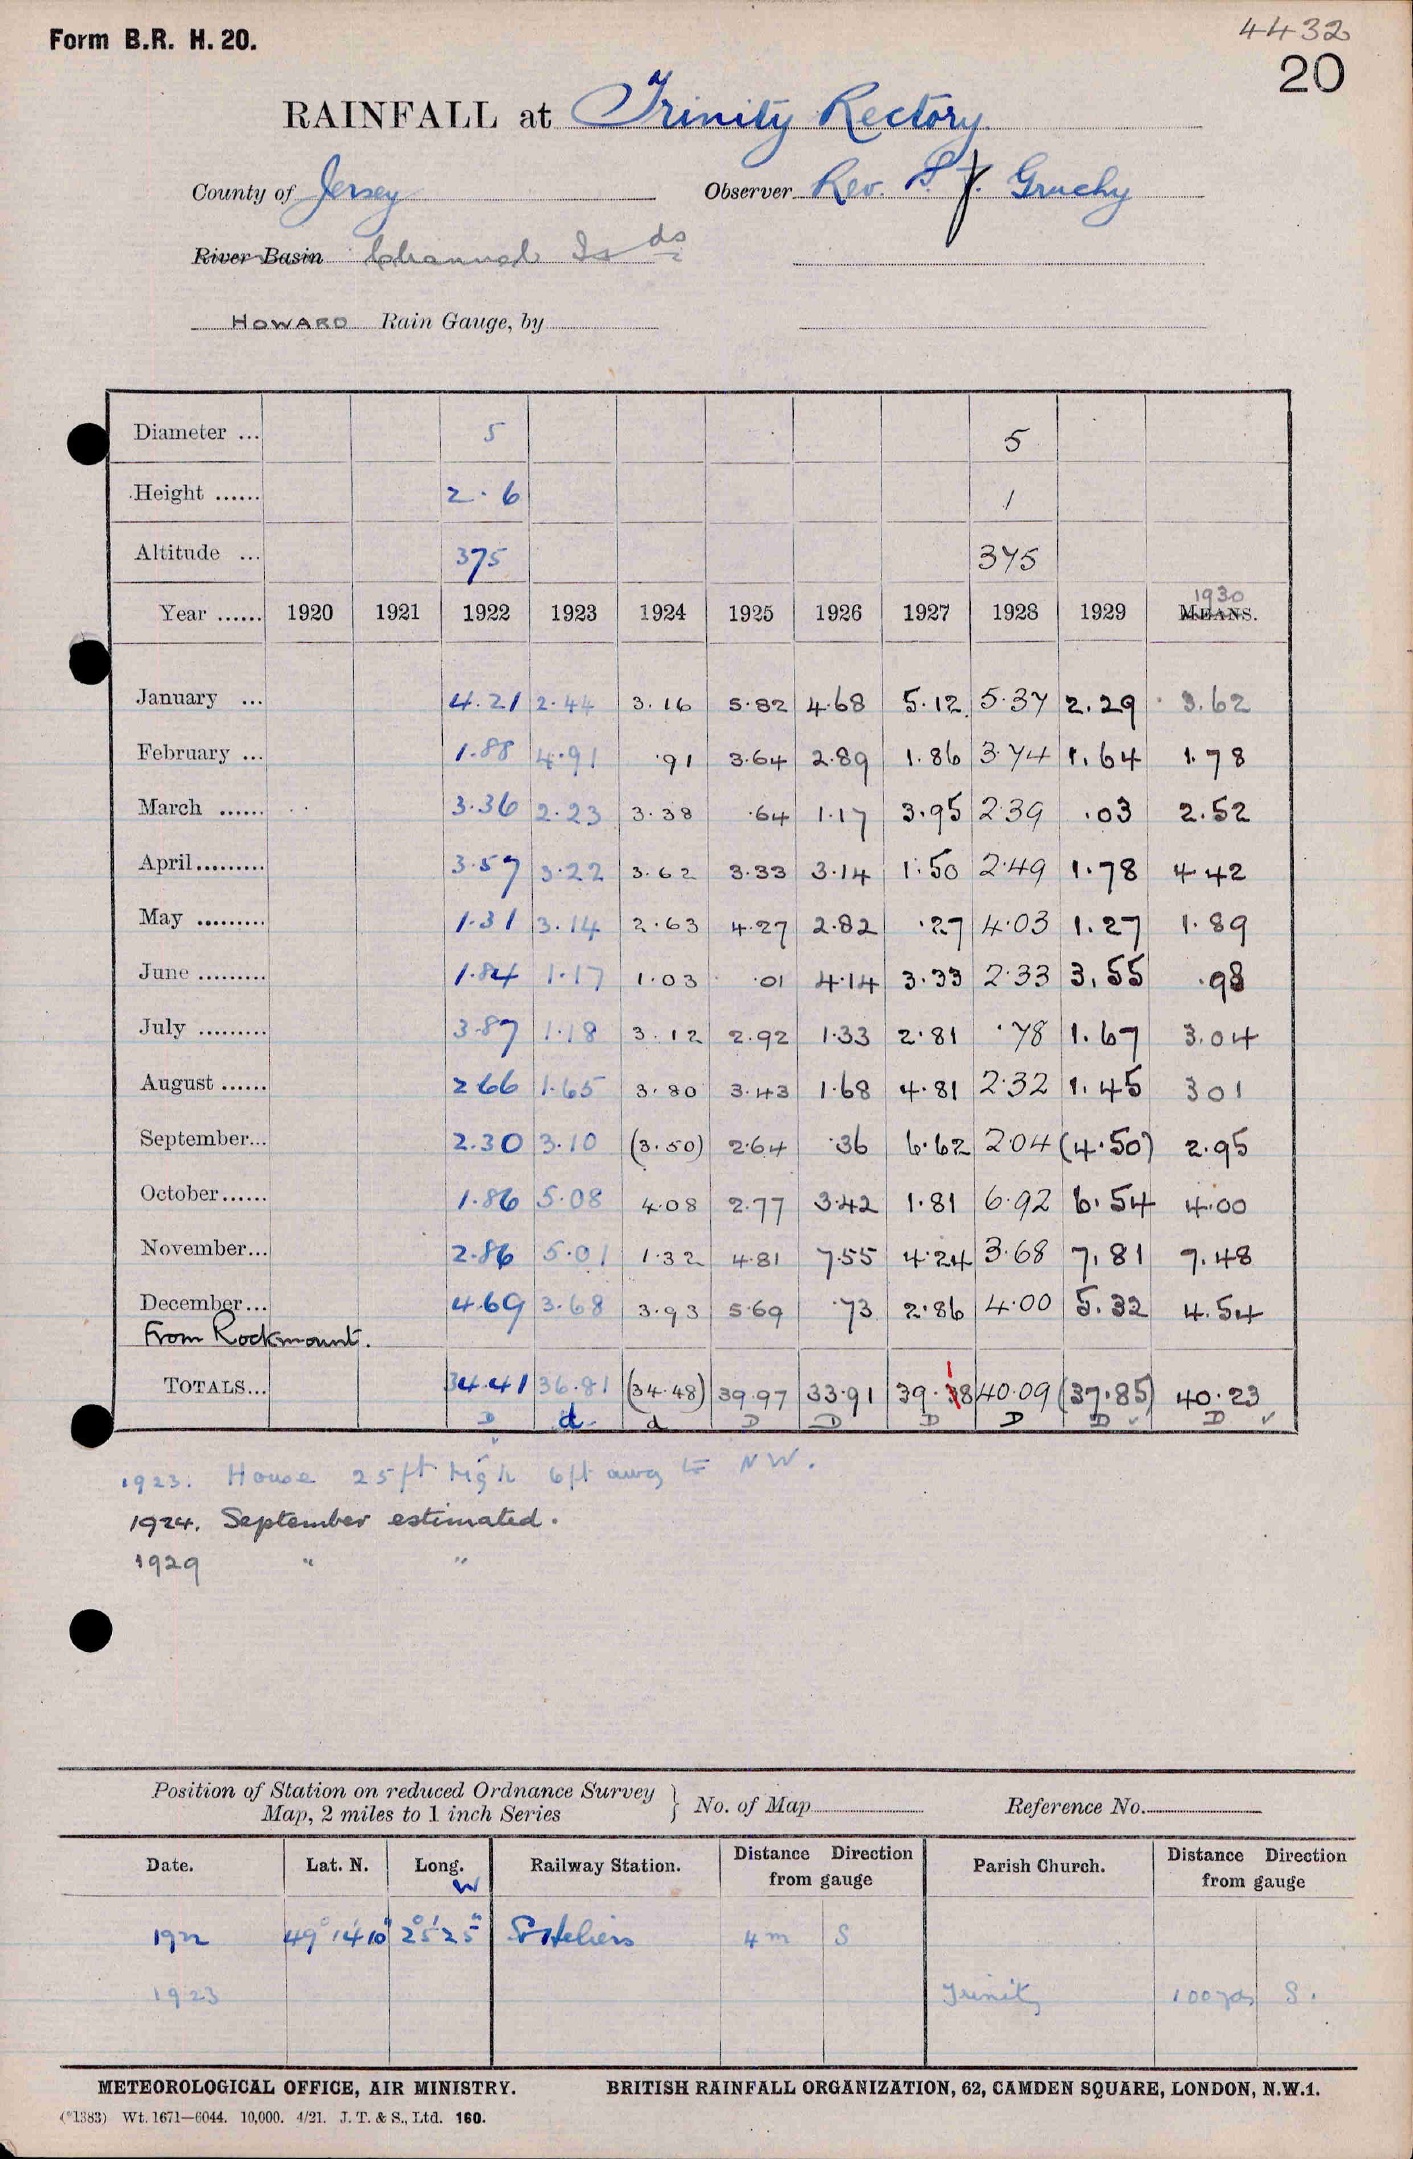 4432
Form B.R. H. 20.
20
RAINFALL at Trinity Rectory
County of Jersey Observer Rev. Gruchy
River Basin Channel Is ds
HOWARD Rain Gauge, by
Diameter ... 5 5
Height ...... 2.6 1
Altitude ... 375 375
1930
Year ...... 1920 1921 1922 1923 1924 1925 1926 1927 1928 1929 MEANS.
January ... 4.21 2.44 3.16 5.82 4.68 5.12 5.37 2.29 3.62
February ... 1.88 4.91 .91 3.64 2.89 1.86 3.74 1.64 1.78
March ...... 3.36 2.23 3.38 .64 1.17 3.95 2.39 .03 2.52
April......... 3.57 3.22 3.62 3.33 3.14 1.50 2.49 1.78 4.42
May ......... 1.31 3.14 2.63 4.27 2.82 .27 4.03 1.27 1.89
June ......... 1.84 1.17 1.03 .01 4.14 3.33 2.33 3.55 .98
July ......... 3.87 1.18 3.12 2.92 1.33 2.81 .78 1.67 3.04
August ...... 2.66 1.65 3.80 3.43 1.68 4.81 2.32 1.45 3 01
September... 2.30 3.10 (3.50) 2.64 .36 6.62 2.04 (4.50) 2.95
October...... 1.86 5.08 4.08 2.77 3.42 1.81 6.92 6.54 4.00
November... 2.86 5.01 1.32 4.81 7.55 4.24 3.68 7.81 7.48
December... 4.69 3.68 3.93 5.69 .73 2.86 4.00 5.32 4.54
From Rockmount.
TOTALS... 34.41 36.81 (34.48) 39.97 33.91 39.18 40.09 (37.85) 40.23
D d d D D D D D ✓ D ✓
1923. House 25ft high 6ft away to NW.
1924. September estimated.
1929 " "
Position of Station on reduced Ordnance Survey
Map, 2 miles to 1 inch Series } No. of Map Reference No.
Date. Lat. N. Long. W Railway Station. Distance Direction from gauge Parish Church. Distance Direction from gauge
1922 49° 14' 10" 2° 5' 25" St Heliers 4 m S
1923 Trinity 100 yds S.
METEOROLOGICAL OFFICE, AIR MINISTRY. BRITISH RAINFALL ORGANIZATION, 62, CAMDEN SQUARE, LONDON, N.W.1.
(*1383) Wt. 1671—6044. 10,000. 4/21. J. T. & S., Ltd. 160.